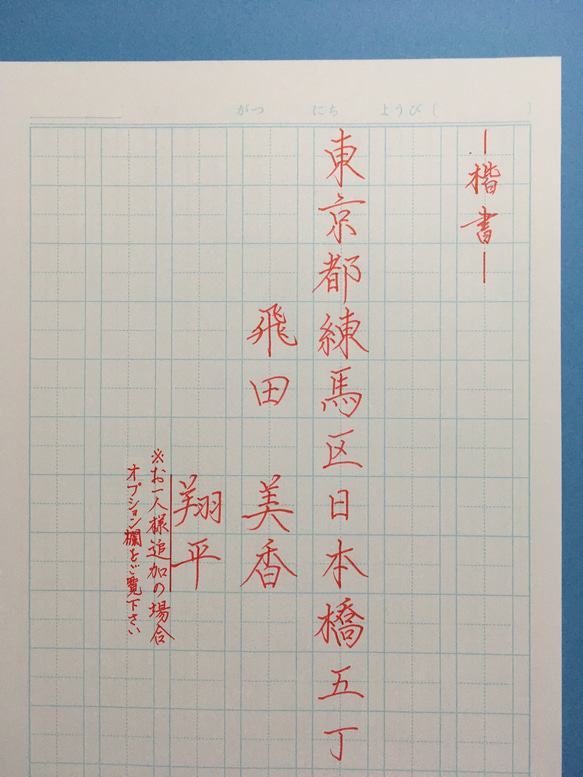 がつ にち ようび（ ）
ー楷書ー
東京都練馬区日本橋五丁
飛田 美香
翔平
※お一人様追加の場合
オプション欄をご覧下さい